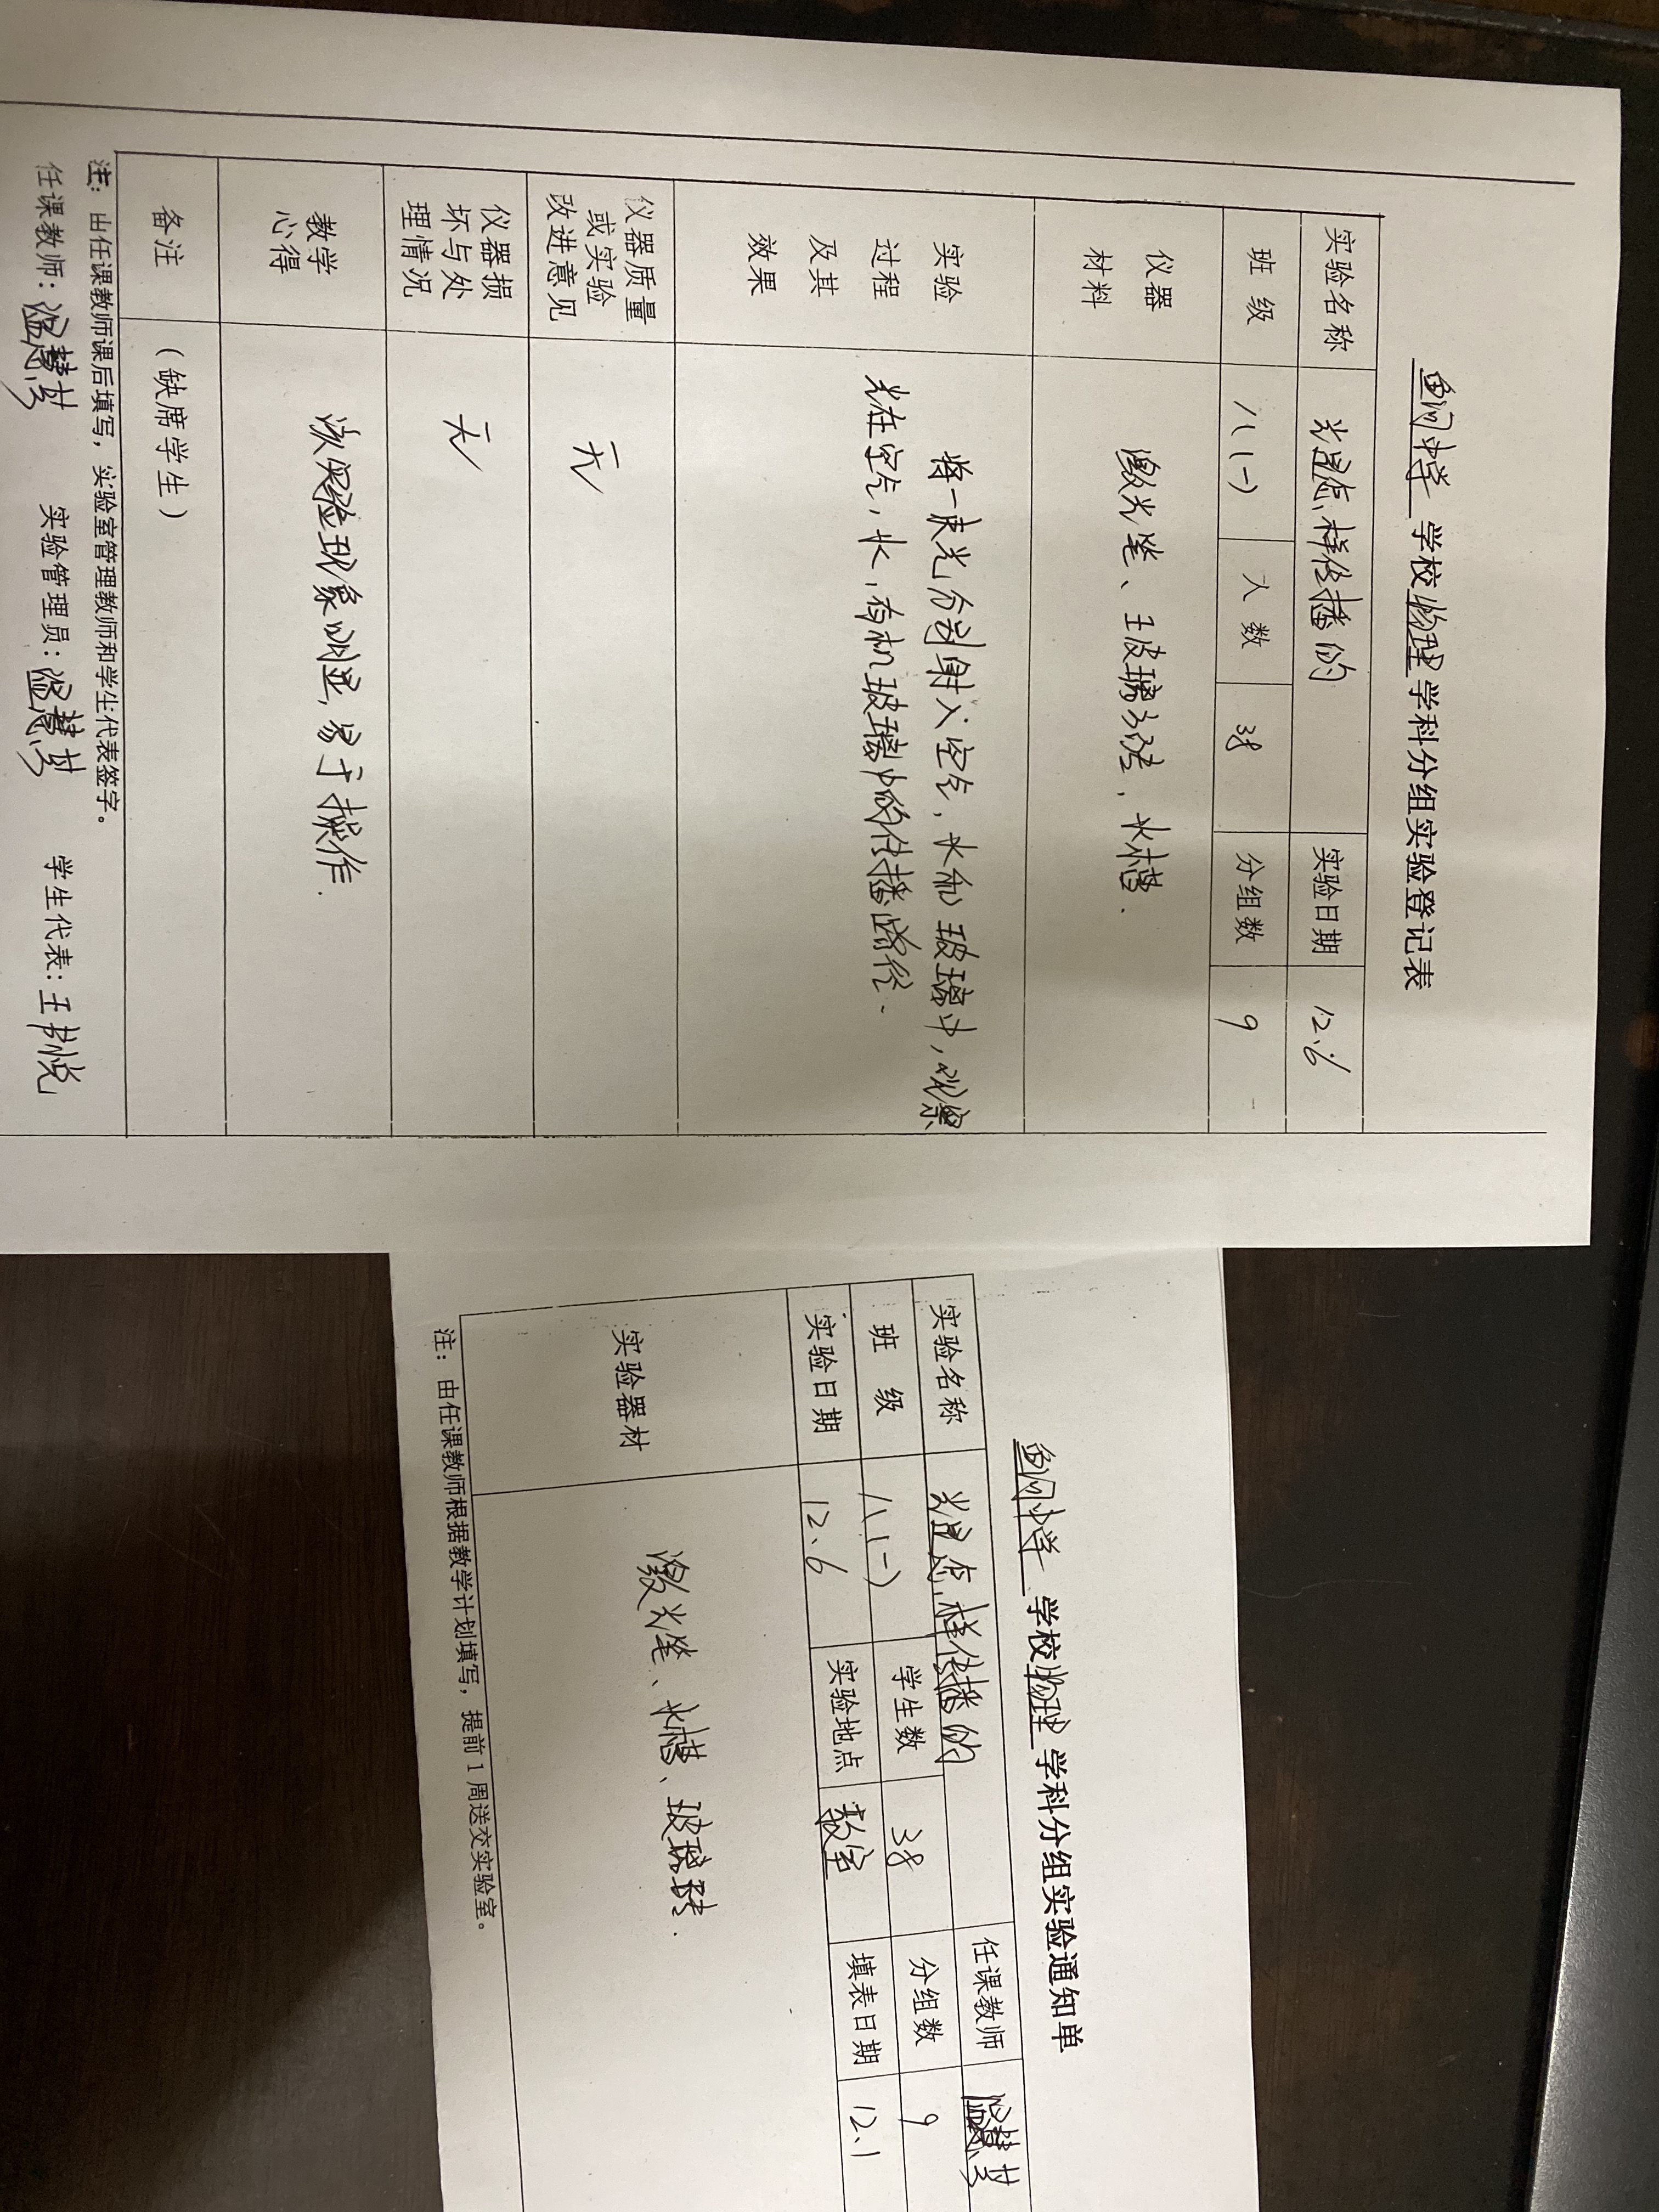 鱼河中学 学校物理学科分组实验登记表
实验名称 光是怎样传播的 实验日期 12.6
班 级 八(一) 人 数 38 分组数 9
仪器材料 激光笔、玻璃砖,水槽.
实验过程及其效果 将一束光分别射入空气,水和玻璃中,观察
光在空气,水,有机玻璃中的传播路径.
仪器质量或实验改进意见 无
仪器损坏与处理情况 无
教学心得 该实验现象明显,易于操作.
备注 (缺席学生)
注:由任课教师课后填写,实验室管理教师和学生代表签字。
任课教师: 实验管理员: 学生代表:王书悦
鱼河中学 学校物理学科分组实验通知单
实验名称 光是怎样传播的 任课教师
班 级 八(一) 学生数 38 分组数 9
实验日期 12.6 实验地点 教室 填表日期 12.1
实验器材 激光笔、水槽、玻璃砖.
注:由任课教师根据教学计划填写,提前1周送交实验室。